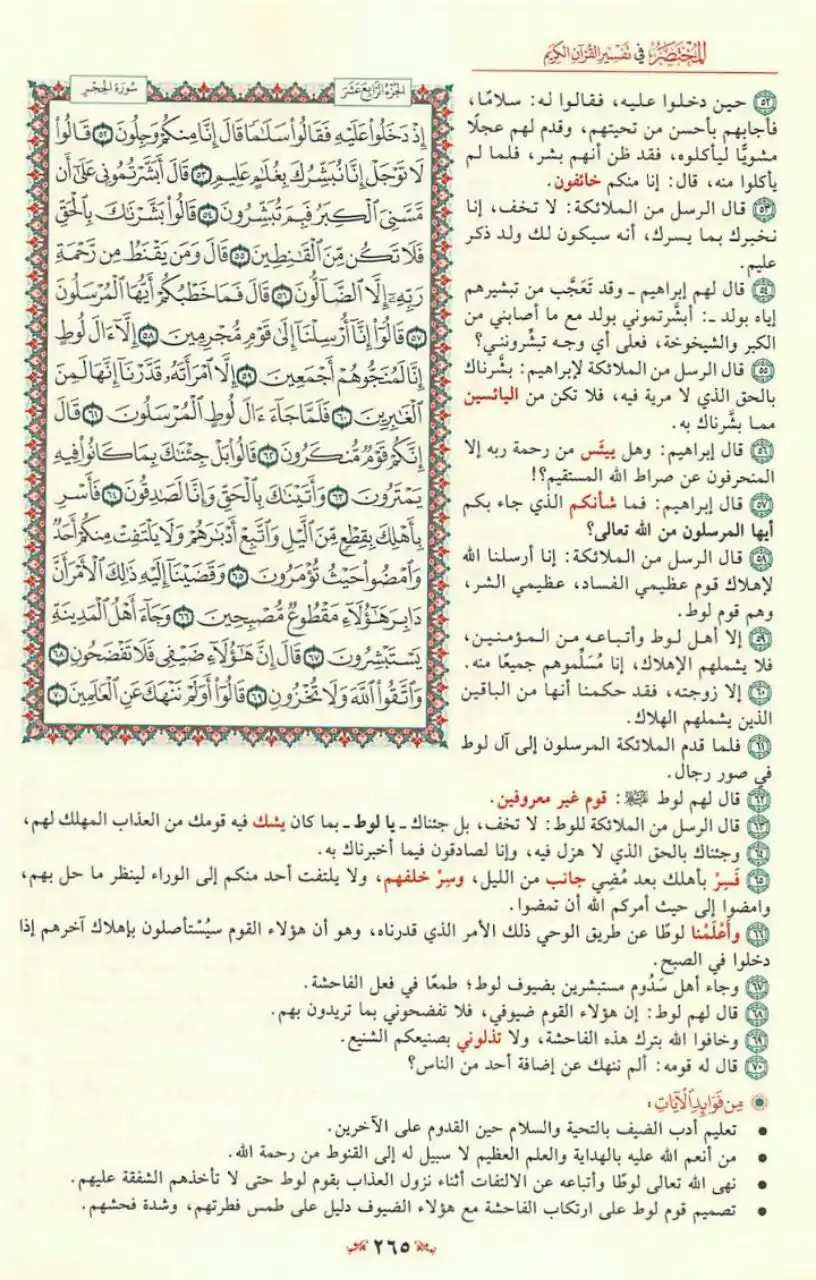 المختصر في تفسير القرآن الكريم
سورة الحجر
الجزء الرابع عشر
إِذْ دَخَلُوا۟ عَلَيْهِ فَقَالُوا۟ سَلَٰمًا قَالَ إِنَّا مِنكُمْ وَجِلُونَ ٥٢ قَالُوا۟
لَا تَوْجَلْ إِنَّا نُبَشِّرُكَ بِغُلَٰمٍ عَلِيمٍ ٥٣ قَالَ أَبَشَّرْتُمُونِى عَلَىٰٓ أَن
مَّسَّنِىَ ٱلْكِبَرُ فَبِمَ تُبَشِّرُونَ ٥٤ قَالُوا۟ بَشَّرْنَٰكَ بِٱلْحَقِّ
فَلَا تَكُن مِّنَ ٱلْقَٰنِطِينَ ٥٥ قَالَ وَمَن يَقْنَطُ مِن رَّحْمَةِ
رَبِّهِۦٓ إِلَّا ٱلضَّآلُّونَ ٥٦ قَالَ فَمَا خَطْبُكُمْ أَيُّهَا ٱلْمُرْسَلُونَ
٥٧ قَالُوٓا۟ إِنَّآ أُرْسِلْنَآ إِلَىٰ قَوْمٍ مُّجْرِمِينَ ٥٨ إِلَّآ ءَالَ لُوطٍ
إِنَّا لَمُنَجُّوهُمْ أَجْمَعِينَ ٥٩ إِلَّا ٱمْرَأَتَهُۥ قَدَّرْنَآ إِنَّهَا لَمِنَ
ٱلْغَٰبِرِينَ ٦٠ فَلَمَّا جَآءَ ءَالَ لُوطٍ ٱلْمُرْسَلُونَ ٦١ قَالَ
إِنَّكُمْ قَوْمٌ مُّنكَرُونَ ٦٢ قَالُوا۟ بَلْ جِئْنَٰكَ بِمَا كَانُوا۟ فِيهِ
يَمْتَرُونَ ٦٣ وَأَتَيْنَٰكَ بِٱلْحَقِّ وَإِنَّا لَصَٰدِقُونَ ٦٤ فَأَسْرِ
بِأَهْلِكَ بِقِطْعٍ مِّنَ ٱلَّيْلِ وَٱتَّبِعْ أَدْبَٰرَهُمْ وَلَا يَلْتَفِتْ مِنكُمْ أَحَدٌ
وَٱمْضُوا۟ حَيْثُ تُؤْمَرُونَ ٦٥ وَقَضَيْنَآ إِلَيْهِ ذَٰلِكَ ٱلْأَمْرَ أَنَّ
دَابِرَ هَٰٓؤُلَآءِ مَقْطُوعٌ مُّصْبِحِينَ ٦٦ وَجَآءَ أَهْلُ ٱلْمَدِينَةِ
يَسْتَبْشِرُونَ ٦٧ قَالَ إِنَّ هَٰٓؤُلَآءِ ضَيْفِى فَلَا تَفْضَحُونِ ٦٨
وَٱتَّقُوا۟ ٱللَّهَ وَلَا تُخْزُونِ ٦٩ قَالُوٓا۟ أَوَلَمْ نَنْهَكَ عَنِ ٱلْعَٰلَمِينَ ٧٠
٥٢ حين دخلوا عليه، فقالوا له: سلامًا،
فأجابهم بأحسن من تحيتهم، وقدم لهم عجلًا
مشويًّا ليأكلوه، فقد ظن أنهم بشر، فلما لم
يأكلوا منه، قال: إنا منكم خائفون.
٥٣ قال الرسل من الملائكة: لا تخف، إنا
نخبرك بما يسرك، أنه سيكون لك ولد ذكر
عليم.
٥٤ قال لهم إبراهيم ـ وقد تَعَجَّب من تبشيرهم
إياه بولد ـ: أبشَّرتموني بولد مع ما أصابني من
الكبر والشيخوخة، فعلى أي وجه تبشِّرونني؟
٥٥ قال الرسل من الملائكة لإبراهيم: بشَّرناك
بالحق الذي لا مرية فيه، فلا تكن من اليائسين
مما بشَّرناك به.
٥٦ قال إبراهيم: وهل ييئَس من رحمة ربه إلا
المنحرفون عن صراط الله المستقيم؟!
٥٧ قال إبراهيم: فما شأنكم الذي جاء بكم
أيها المرسلون من الله تعالى؟
٥٨ قال الرسل من الملائكة: إنا أرسلنا الله
لإهلاك قوم عظيمي الفساد، عظيمي الشر،
وهم قوم لوط.
٥٩ إلا أهل لوط وأتباعه من المؤمنين،
فلا يشملهم الإهلاك، إنا مُسَلِّموهم جميعًا منه.
٦٠ إلا زوجته، فقد حكمنا أنها من الباقين
الذين يشملهم الهلاك.
٦١ فلما قدم الملائكة المرسلون إلى آل لوط
في صور رجال.
٦٢ قال لهم لوط ﷺ: قوم غير معروفين.
٦٣ قال الرسل من الملائكة للوط: لا تخف، بل جئناك ـ يا لوط ـ بما كان يشك فيه قومك من العذاب المهلك لهم،
٦٤ وجئناك بالحق الذي لا هزل فيه، وإنا لصادقون فيما أخبرناك به.
٦٥ فَسِرْ بأهلك بعد مُضِي جانب من الليل، وسِرْ خلفهم، ولا يلتفت أحد منكم إلى الوراء لينظر ما حل بهم،
وامضوا إلى حيث أمركم الله أن تمضوا.
٦٦ وأَعْلَمْنا لوطًا عن طريق الوحي ذلك الأمر الذي قدرناه، وهو أن هؤلاء القوم سيُسْتأصلون بإهلاك آخرهم إذا
دخلوا في الصبح.
٦٧ وجاء أهل سَدُوم مستبشرين بضيوف لوط؛ طمعًا في فعل الفاحشة.
٦٨ قال لهم لوط: إن هؤلاء القوم ضيوفي، فلا تفضحوني بما تريدون بهم.
٦٩ وخافوا الله بترك هذه الفاحشة، ولا تذلوني بصنيعكم الشنيع.
٧٠ قال له قومه: ألم ننهك عن إضافة أحد من الناس؟
من فوائد الآيات:
• تعليم أدب الضيف بالتحية والسلام حين القدوم على الآخرين.
• من أنعم الله عليه بالهداية والعلم العظيم لا سبيل له إلى القنوط من رحمة الله.
• نهى الله تعالى لوطًا وأتباعه عن الالتفات أثناء نزول العذاب بقوم لوط حتى لا تأخذهم الشفقة عليهم.
• تصميم قوم لوط على ارتكاب الفاحشة مع هؤلاء الضيوف دليل على طمس فطرتهم، وشدة فحشهم.
٢٦٥